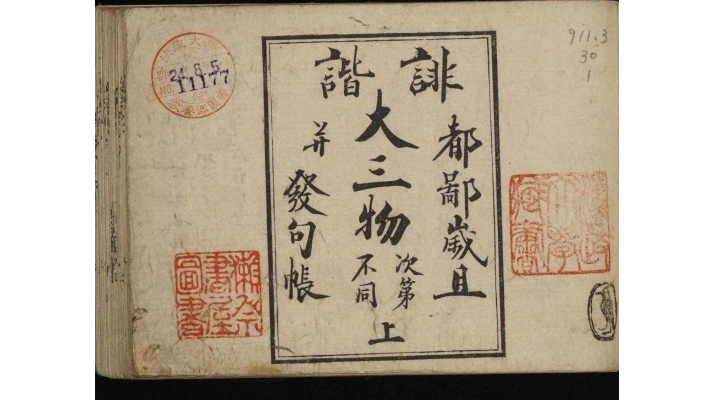 誹諧
都鄙歳旦
大三物
次第
不同
上
并
發句帳
獺祭
書屋
圖書
24.8.5
11177
911.3
30
1